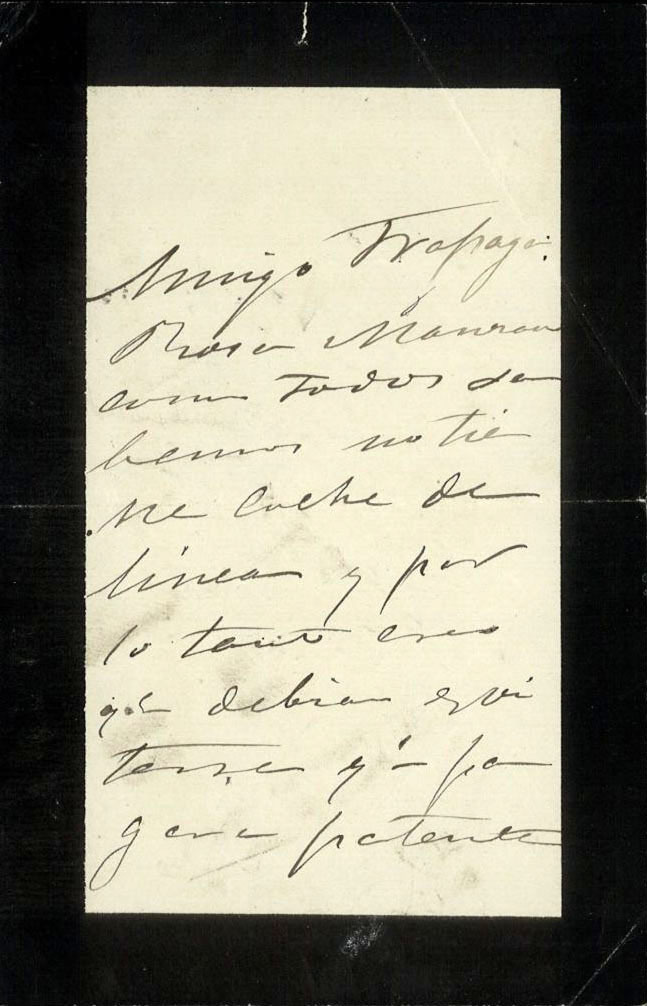 Amigo Trapaga.
Rosa Manrau
como todos sa
bemos no tie
ne coche de
linea y por
lo tanto creo
qe debia evi
tarse qe pa
gara patente